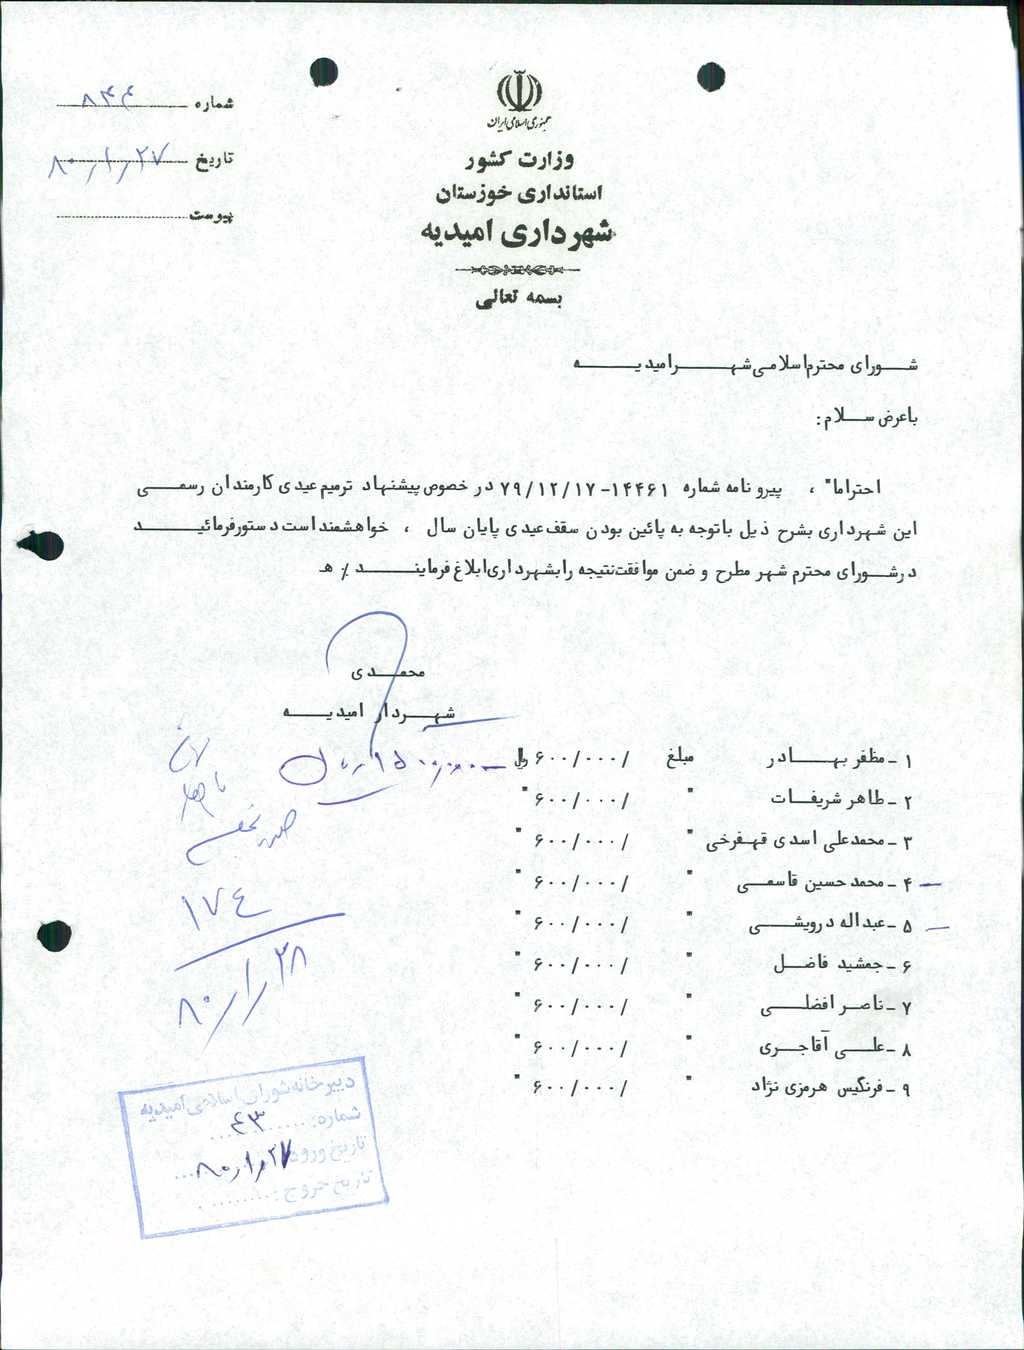 شماره ۸۴۴
تاریخ ۸۰/۱/۲۷
پیوست
جمهوری اسلامی ایران
وزارت کشور
استانداری خوزستان
شهرداری امیدیه
بسمه تعالی
شورای محترم اسلامی شهر امیدیه
با عرض سلام:
احتراما" ، پیرو نامه شماره ۱۴۴۶۱-۷۹/۱۲/۱۷ در خصوص پیشنهاد ترمیم عیدی کارمندان رسمی
این شهرداری بشرح ذیل با توجه به پائین بودن سقف عیدی پایان سال ، خواهشمند است دستور فرمائید
در شورای محترم شهر مطرح و ضمن موافقت نتیجه را بشهرداری ابلاغ فرمایند ٪ هـ
محمدی
شهردار امیدیه
۱- مظفر بهادر مبلغ ۶۰۰/۰۰۰/ ریال
۲- طاهر شریفات " ۶۰۰/۰۰۰/ "
۳- محمدعلی اسدی قهفرخی " ۶۰۰/۰۰۰/ "
۴- محمدحسین قاسمی " ۶۰۰/۰۰۰/ "
۵- عبداله درویشی " ۶۰۰/۰۰۰/ "
۶- جمشید فاضل " ۶۰۰/۰۰۰/ "
۷- ناصر افضلی " ۶۰۰/۰۰۰/ "
۸- علی آقاجری " ۶۰۰/۰۰۰/ "
۹- فرنگیس هرمزی نژاد " ۶۰۰/۰۰۰/ "
۱۷٤
۸۰/۱/۲۸
دبیرخانه شورای اسلامی امیدیه
شماره: ۴۳
تاریخ ورود: ۸۰/۱/۲۷
تاریخ خروج: